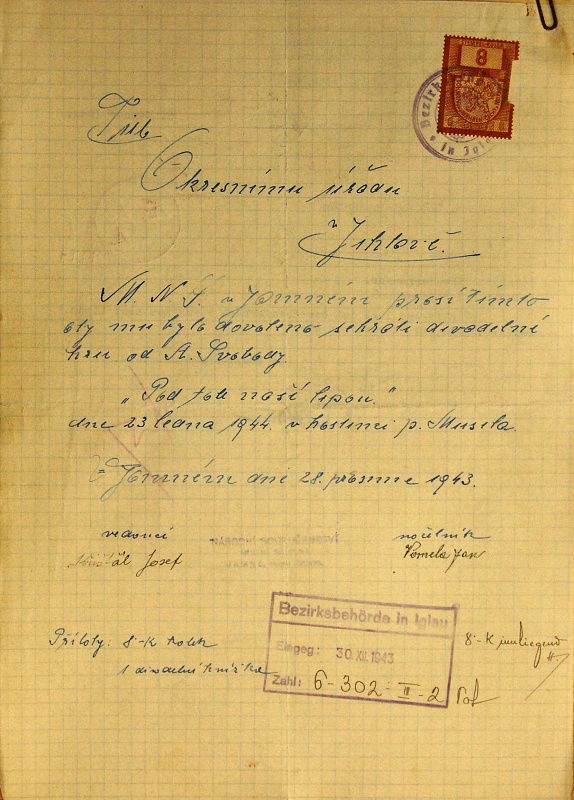 8
Bezirk
in Igl
Okresnímu úřadu
v Jihlavě.
M. N. F. v Jamném prosí tímto
aby mu bylo dovoleno sehráti divadelní
hru od A. Svobody.
„Pod tou naší lipou."
dne 23 ledna 1944. v hostinci p. Musila.
V Jamném dni 28. prosince 1943.
vedoucí náčelník
Josef Jan
Přílohy: 8·K kolek 8·K inliegend
1 divadelní knížka
Bezirksbehörde in Iglau
Eingeg: 30. XII. 1943
Zahl: 6-302-II-2